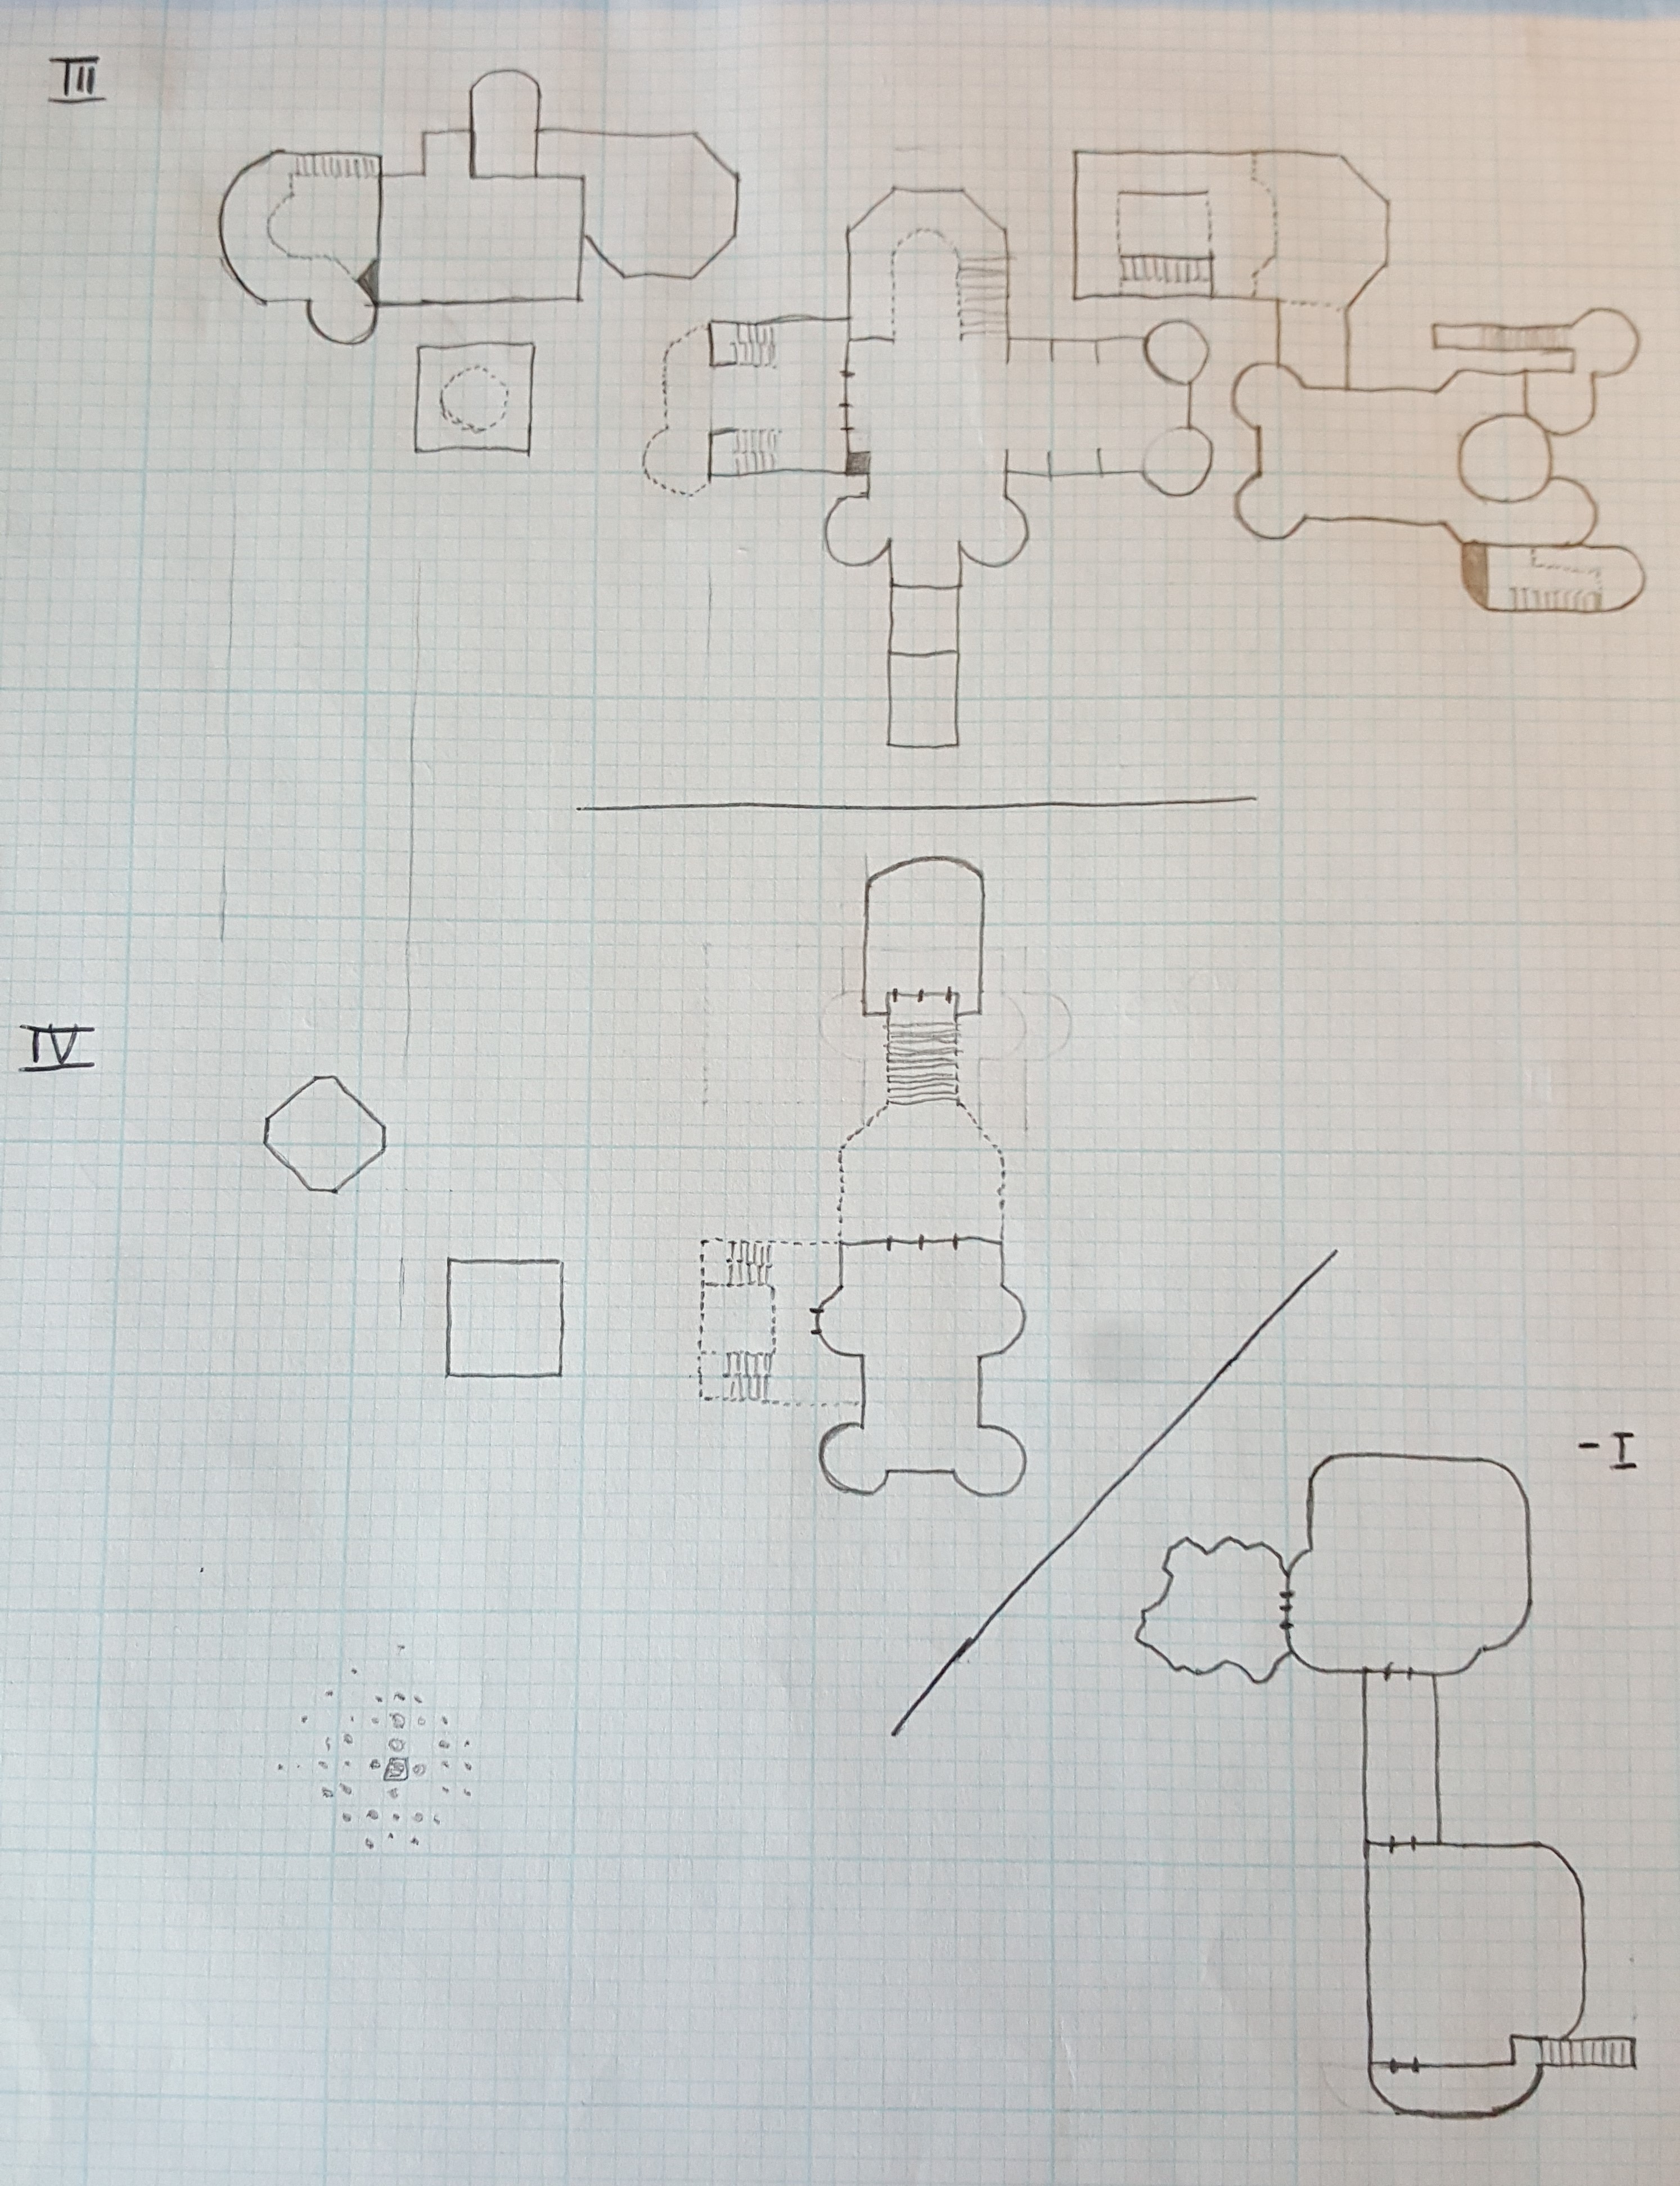 III
IV
-I